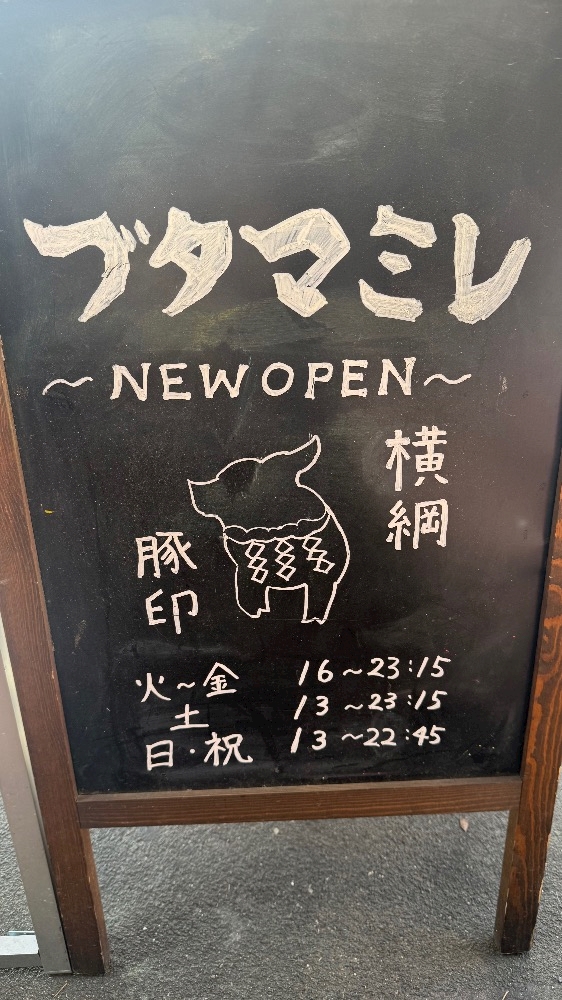 ブタマミレ
～NEW OPEN～
横綱
豚印
火～金 16～23:15
土 13～23:15
日・祝 13～22:45